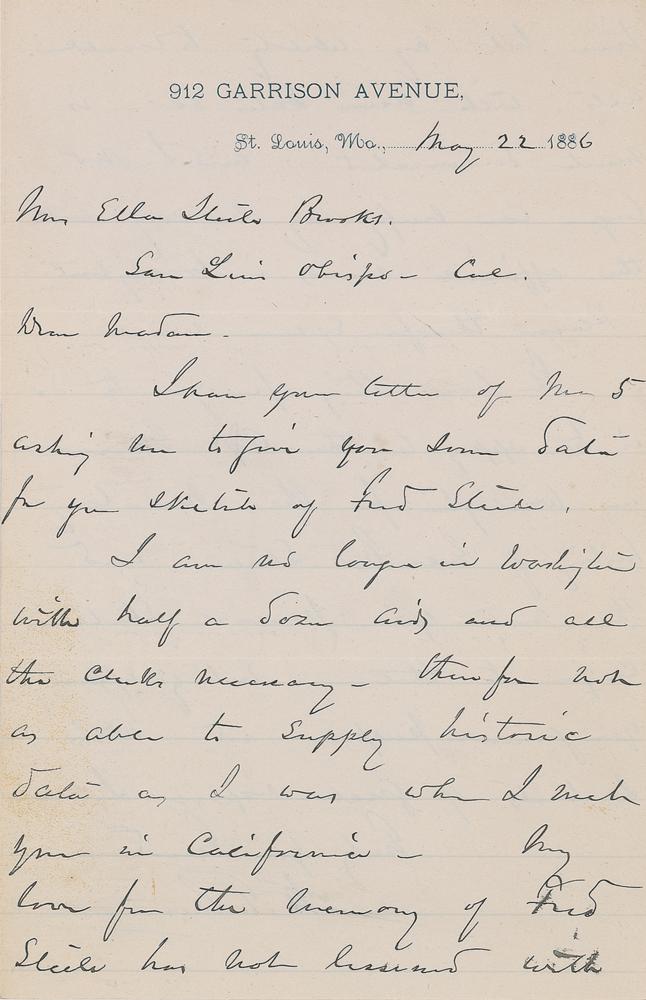 912 GARRISON AVENUE,
St. Louis, Mo., May 22 1886
Mrs Ella Steele Brooks.
San Luis Obispo - Cal.
Dear Madam -
I have your letter of May 5
asking me to give you some data
for your sketch of Fred Steele.
I am no longer in Washington
with half a dozen aids and all
the clerks necessary - therefore not
as able to supply historic
data as I was when I met
you in California - My
love for the memory of Fred
Steele has not lessened with